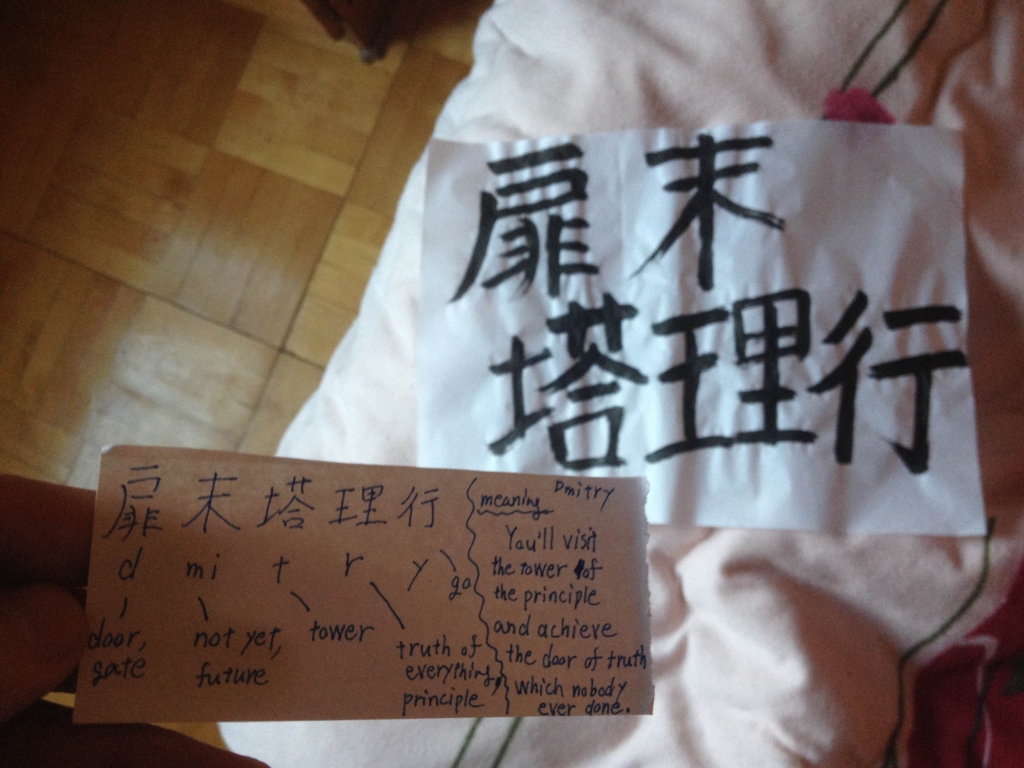 扉末
塔理行
扉末塔理行
d mi t r y
door, gate
not yet, future
tower
truth of everything, principle
go
meaning Dmitry
You'll visit
the tower of
the principle
and achieve
the door of truth
which nobody
ever done.